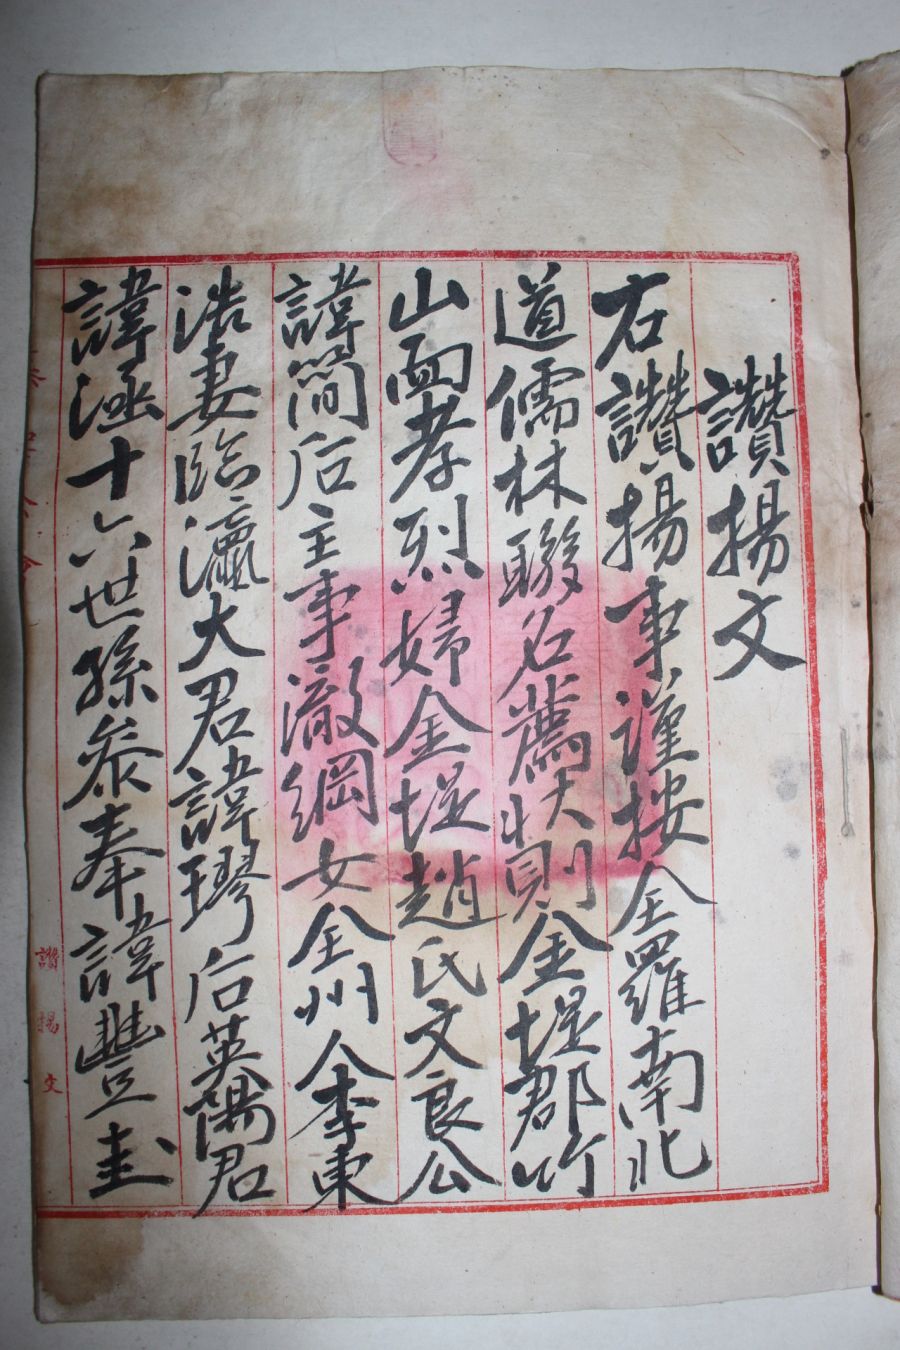 讚揚文
右讚揚事謹按全羅南北
道儒林聯名薦狀則金堤郡竹
山面孝烈婦金堤趙氏文良公
諱簡后主事澈綱女全州人李東
浩妻臨瀛大君諱璆后英陽君
諱涵十六世孫參奉諱豊圭
讚揚文